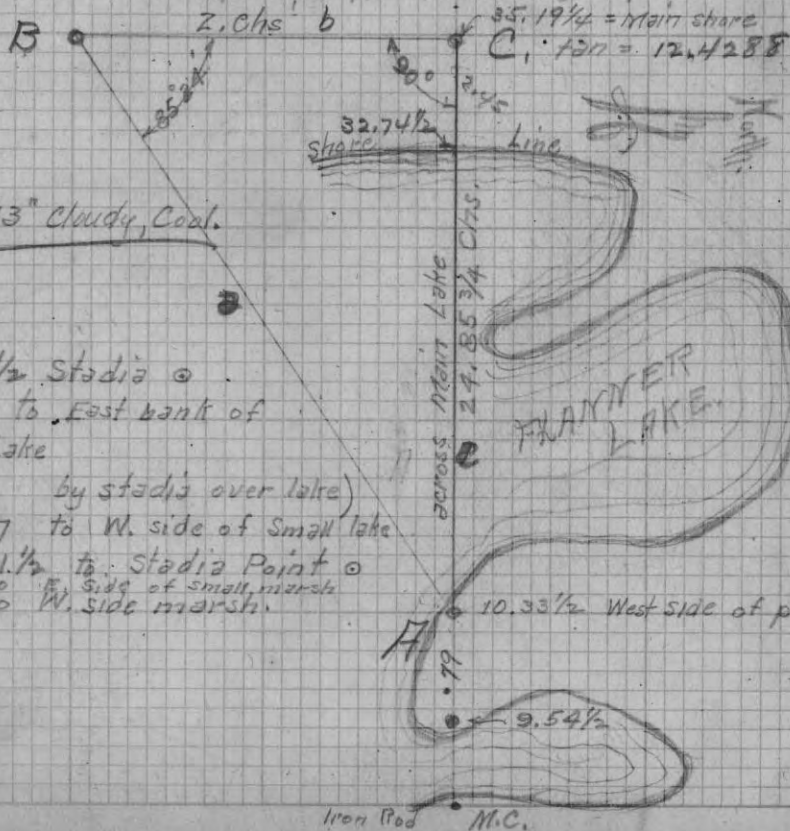 35.19 1/4 = Main shore
B 2. chs b C. tan = 12.4288
90°
2.45
32.74 1/2
shore Line
3" Cloudy, Cool.
across Main Lake
24.85 3/4 Chs.
1/2 Stadia ⊙
to East bank of
ake
FLANNER
LAKE.
by stadia over lake)
7 to W. side of Small lake
1. 1/2 to Stadia Point ⊙
o E. side of small marsh
o W. side marsh.
A 10.33 1/2 West side of p
.79
9.54 1/2
Iron Rod M.C.